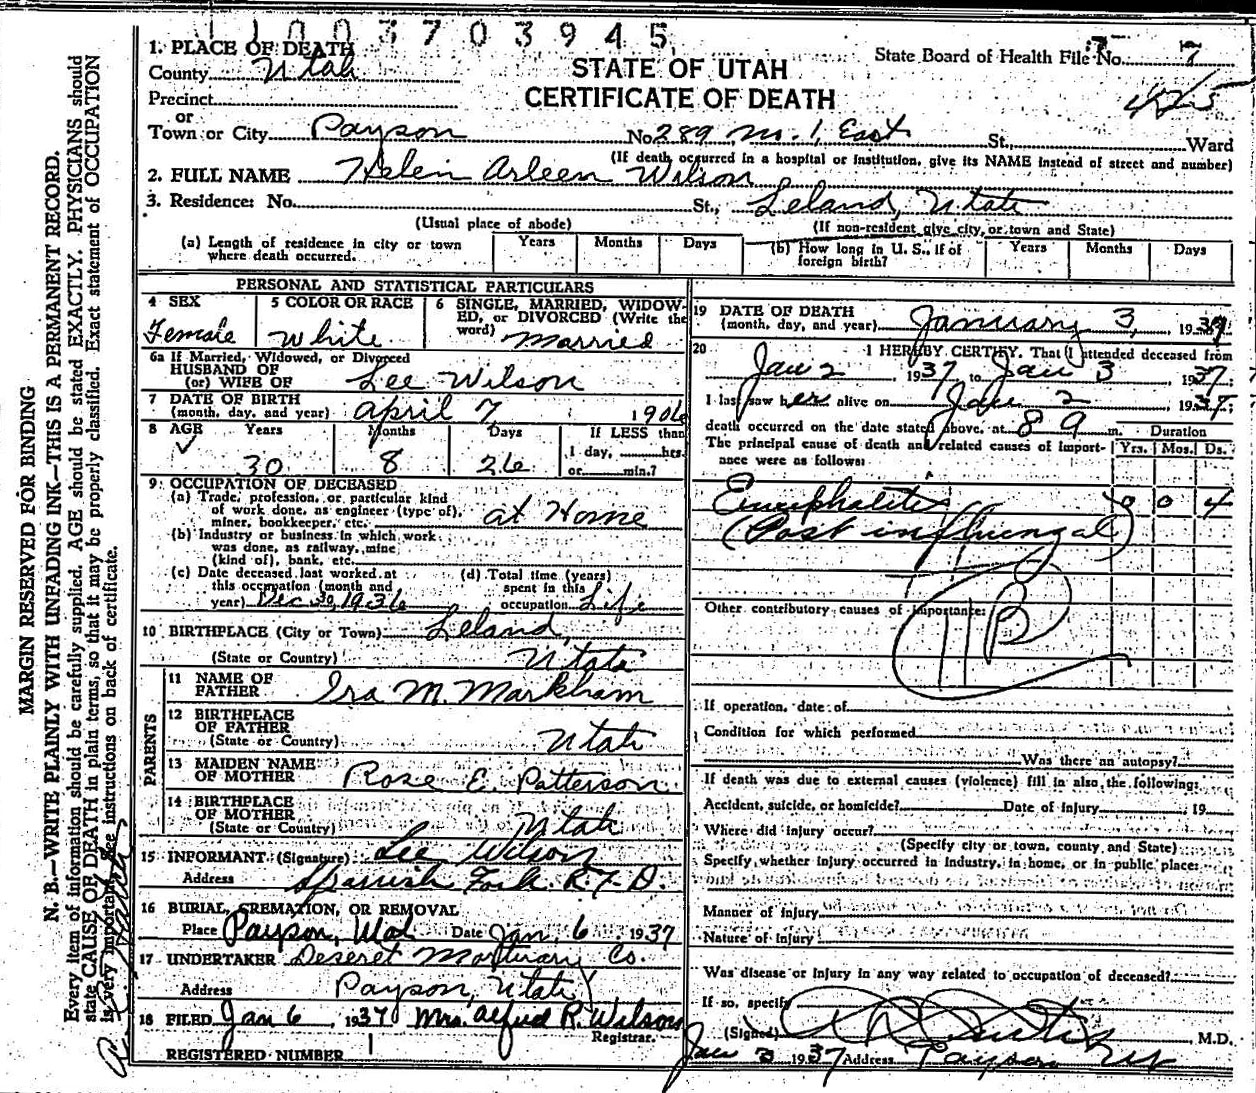 1 1 0 0 3 7 0 3 9 4 5
1. PLACE OF DEATH
County Utah
STATE OF UTAH
CERTIFICATE OF DEATH
State Board of Health File No. 7
Precinct
or
Town or City Payson No 289 No. 1, East St., Ward
(If death occurred in a hospital or institution, give its NAME instead of street and number)
2. FULL NAME Helen Arleen Wilson
3. Residence: No. St., Leland, Utah
(Usual place of abode) (If non-resident give city, or town and State)
(a) Length of residence in city or town where death occurred. Years Months Days
(b) How long in U. S., if of foreign birth? Years Months Days
PERSONAL AND STATISTICAL PARTICULARS
4 SEX
Female
5 COLOR OR RACE
White
6 SINGLE, MARRIED, WIDOW-
ED, or DIVORCED (Write the
word) Married
6a If Married, Widowed, or Divorced
HUSBAND OF
(or) WIFE OF Lee Wilson
7 DATE OF BIRTH
(month, day, and year) April 7 1906
8 AGE Years Months Days If LESS than
1 day, hrs.
30 8 26 or min.?
9 OCCUPATION OF DECEASED
(a) Trade, profession, or particular kind
of work done, as engineer (type of),
miner, bookkeeper, etc. at Home
(b) Industry or business in which work
was done, as railway, mine
(kind of), bank, etc.
(c) Date deceased last worked at
this occupation (month and
year) Dec 30, 1936
(d) Total time (years)
spent in this
occupation Life
10 BIRTHPLACE (City or Town) Leland,
(State or Country) Utah
PARENTS
11 NAME OF
FATHER Ira M. Markham
12 BIRTHPLACE
OF FATHER
(State or Country) Utah
13 MAIDEN NAME
OF MOTHER Rose E. Patterson
14 BIRTHPLACE
OF MOTHER
(State or Country) Utah
15 INFORMANT (Signature) Lee Wilson
Address Spanish Fork R.F.D.
16 BURIAL, CREMATION, OR REMOVAL
Place Payson, Utah Date Jan. 6 1937
17 UNDERTAKER Deseret Mortuary Co.
Address Payson, Utah
18 FILED Jan 6, 1937 Mrs. Alfred R. Wilson
Registrar.
REGISTERED NUMBER 1
19 DATE OF DEATH
(month, day, and year) January 3, 1937
20 I HEREBY CERTIFY, That I attended deceased from
Jan 2 1937 to Jan 3 1937;
I last saw her alive on Jan 2 1937;
death occurred on the date stated above, at 8 a m. Duration
The principal cause of death and related causes of import-
ance were as follows: Yrs. Mos. Ds.
Encephalitis 0 0 4
(Post influenzal)
Other contributory causes of importance:
If operation, date of
Condition for which performed
Was there an autopsy?
If death was due to external causes (violence) fill in also, the following:
Accident, suicide, or homicide? Date of injury , 19
Where did injury occur?
(Specify city or town, county, and State)
Specify whether injury occurred in industry, in home, or in public place:
Manner of injury
Nature of injury
Was disease or injury in any way related to occupation of deceased?
If so, specify
(Signed) , M.D.
Jan 3 1937 Address Payson
MARGIN RESERVED FOR BINDING
N. B.—WRITE PLAINLY WITH UNFADING INK—THIS IS A PERMANENT RECORD.
Every item of information should be carefully supplied. AGE should be stated EXACTLY. PHYSICIANS should
state CAUSE OF DEATH in plain terms, so that it may be properly classified. Exact statement of OCCUPATION
is very important. See instructions on back of certificate.